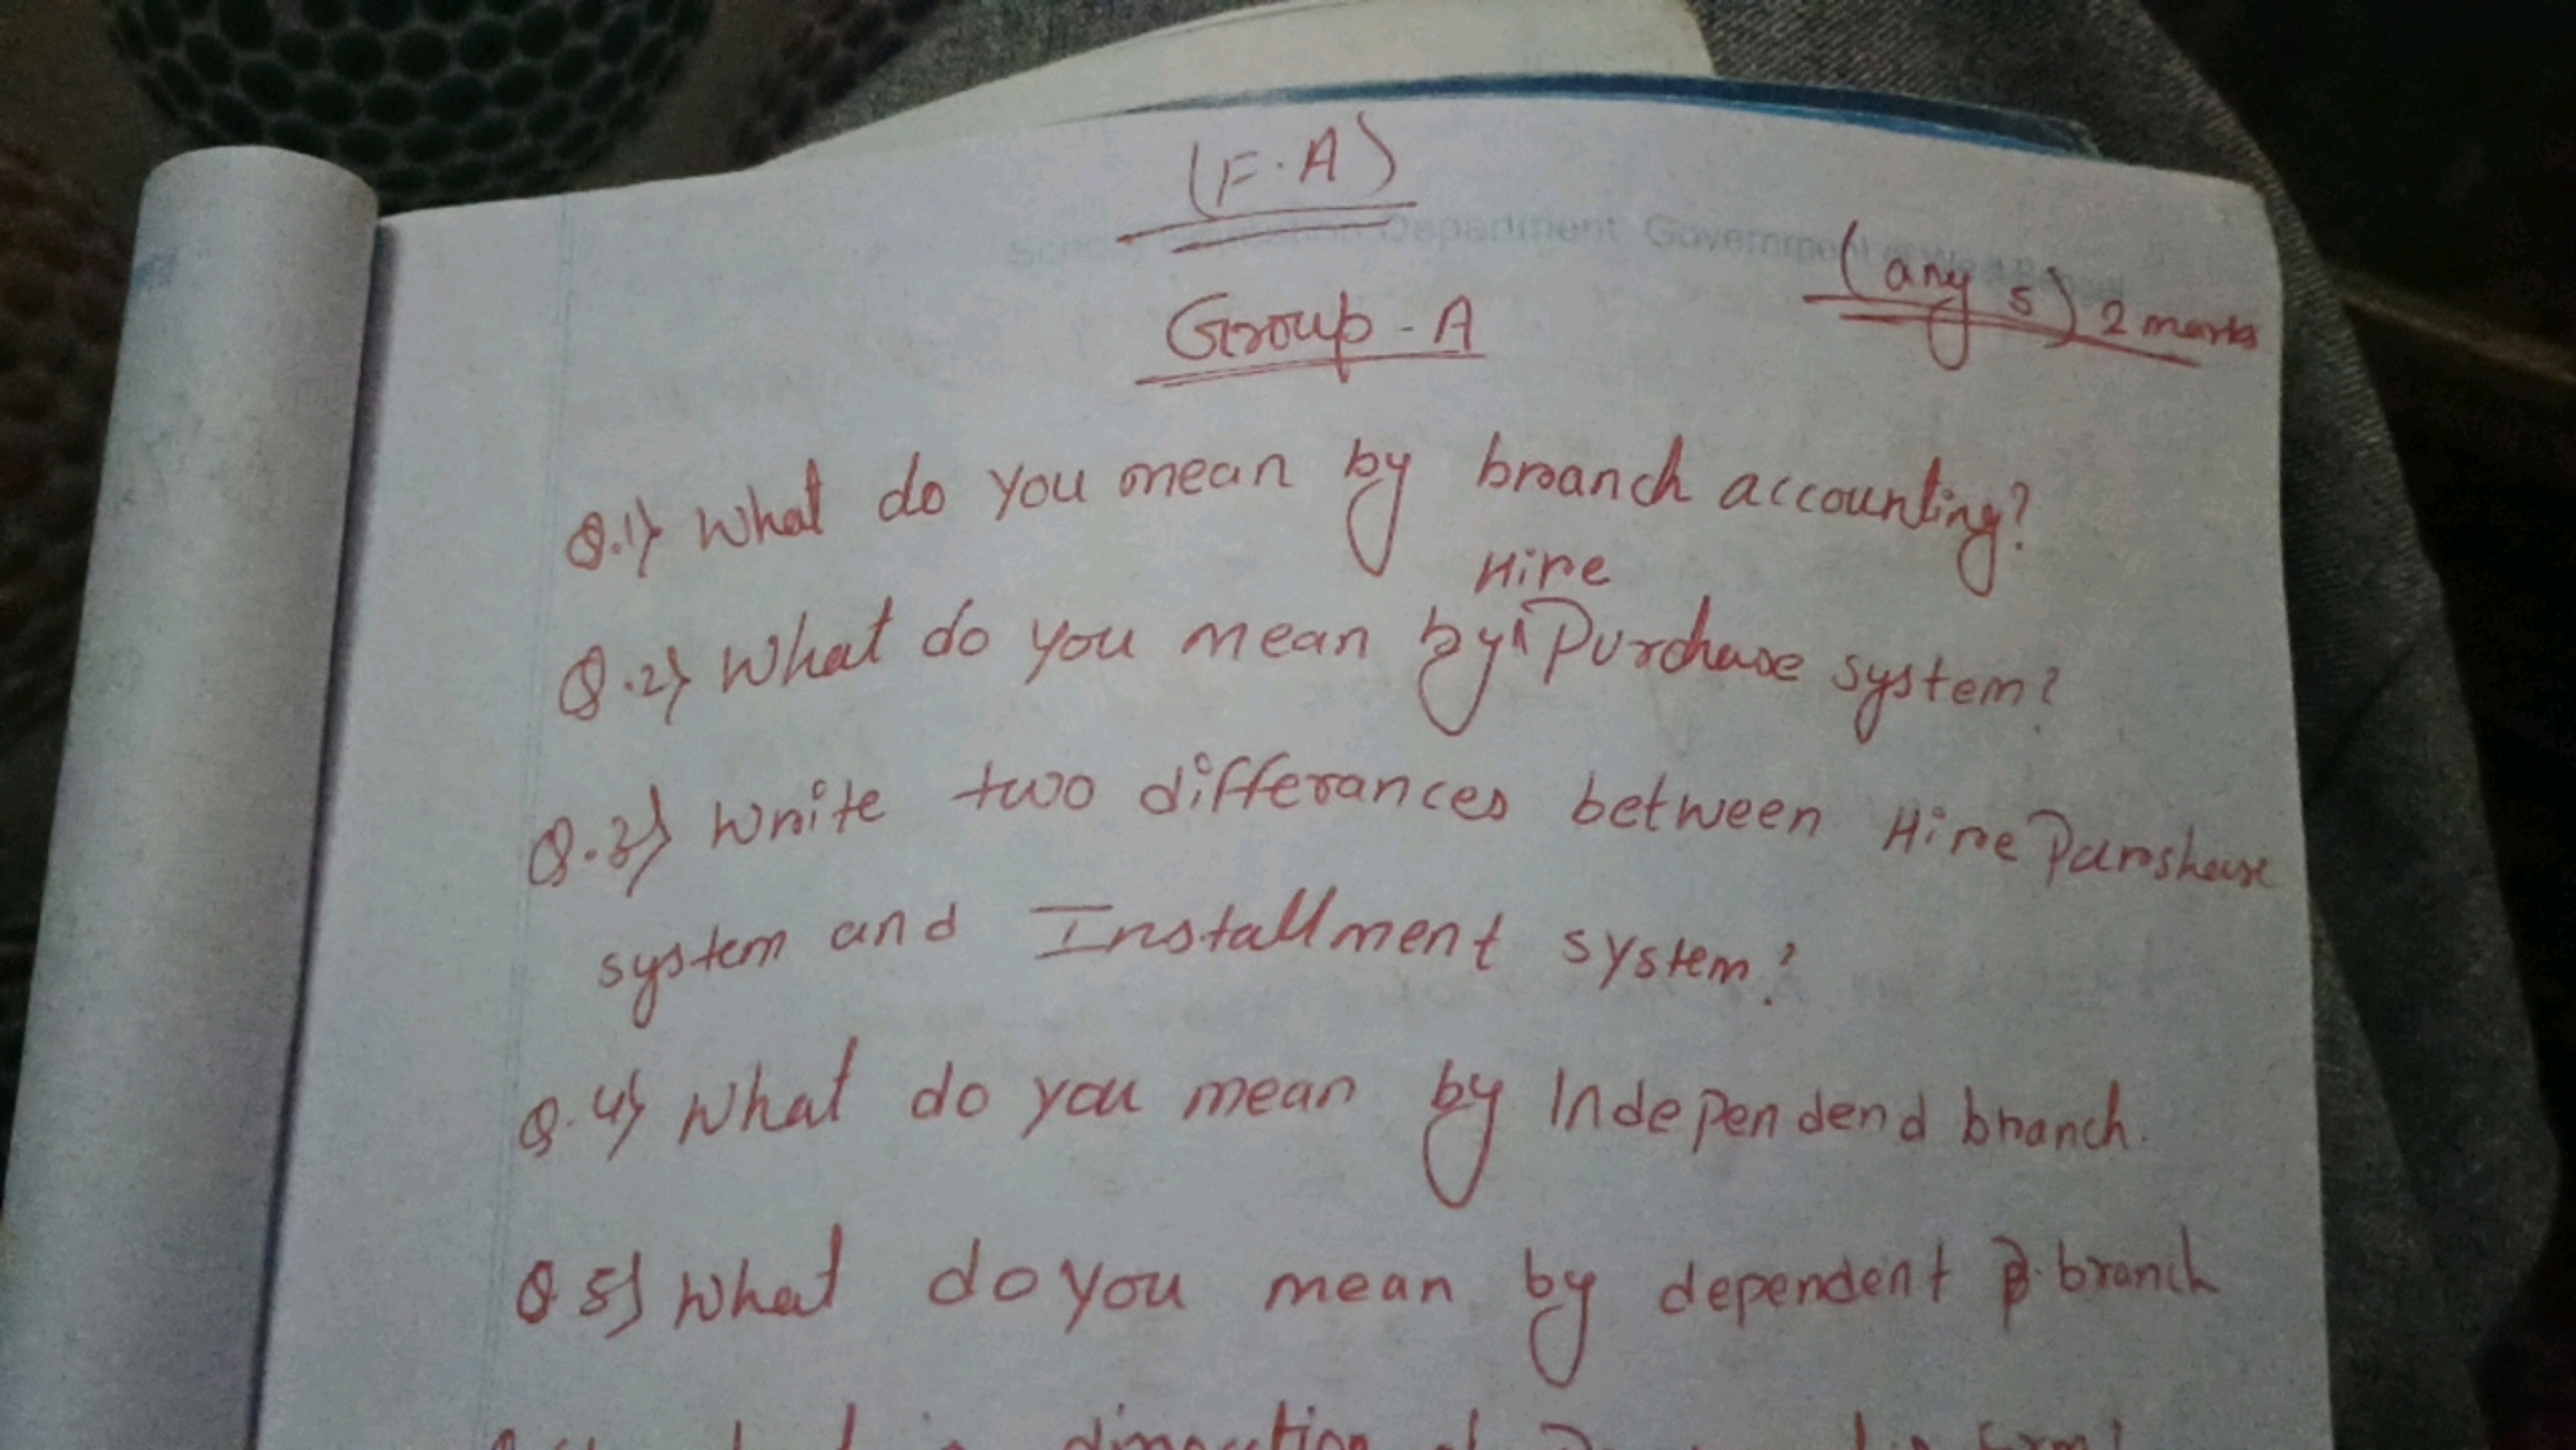 (F.A)
School Education Department Government of West Bengal
Group - A
(any 5) 2 marks
Q.1) What do you mean by branch accounting?
Hire
Q.2) What do you mean by ^ Purchase system?
Q.3) Write two differances between Hire Parshase
system and Installment system?
Q.4) What do you mean by Independend branch.
Q 5) What do you mean by dependent B. branch